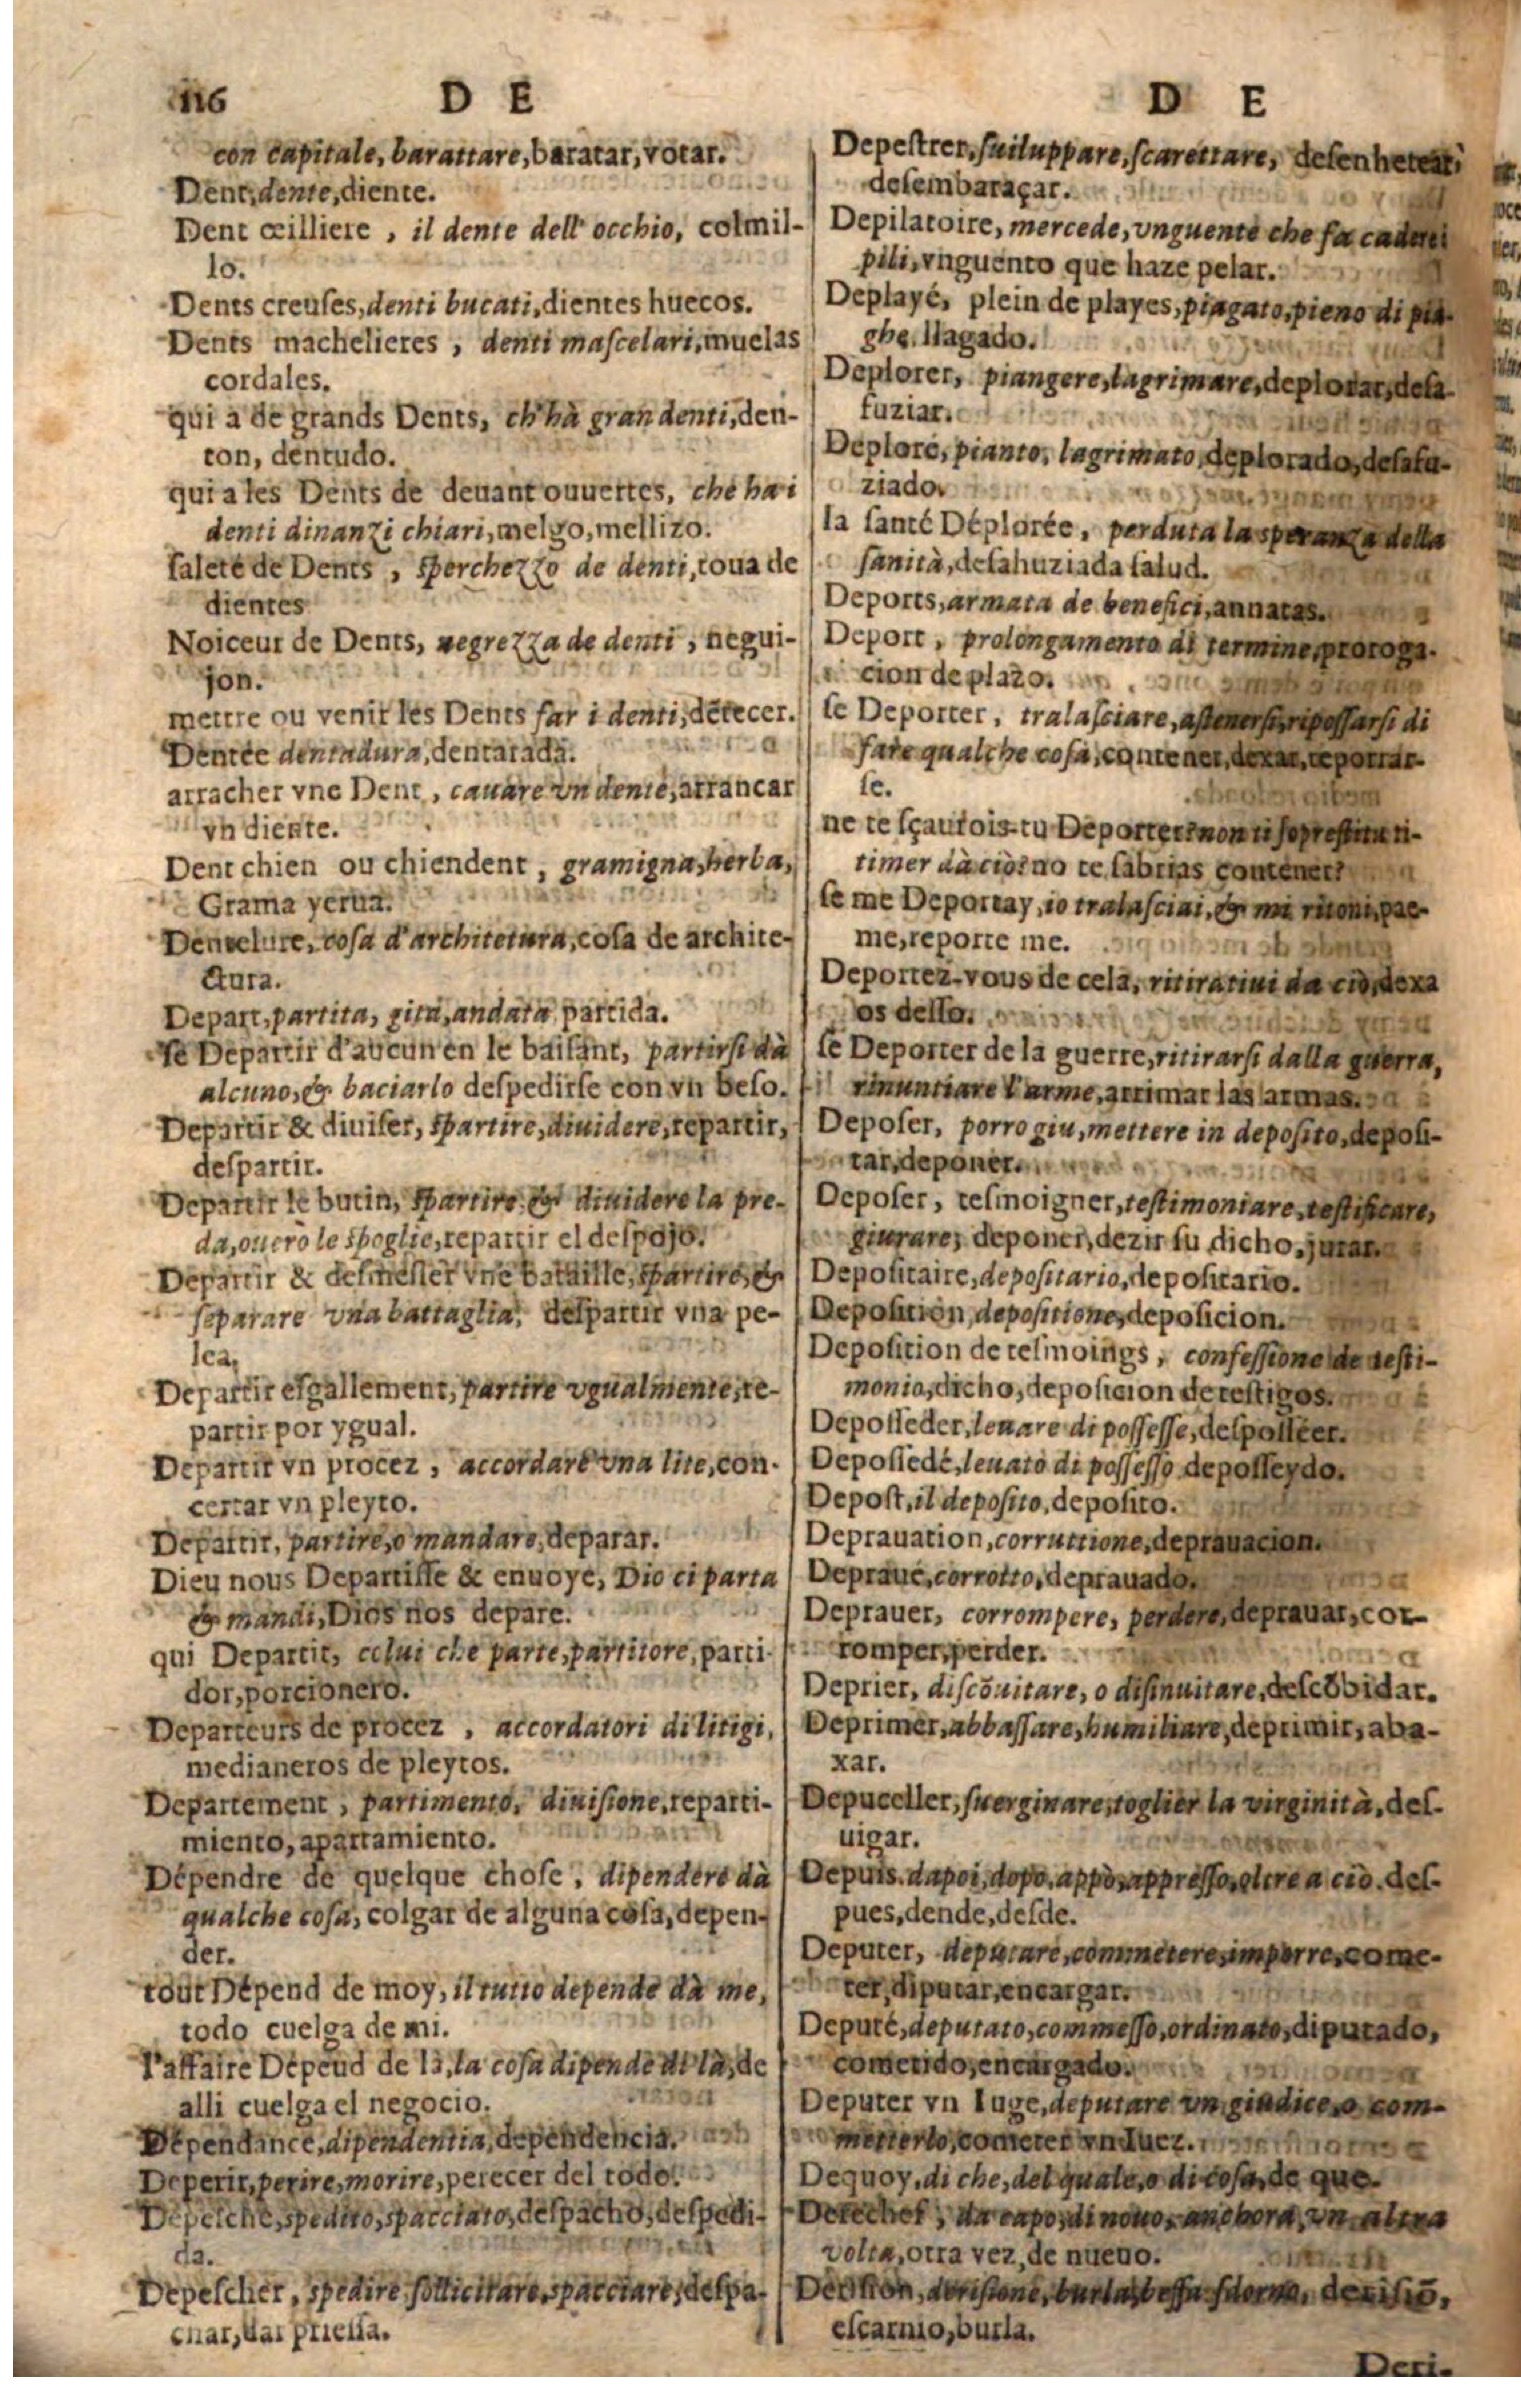 116 D E
con capitale, barattare, baratar, votar.
Dent, dente, diente.
Dent œilliere, il dente dell' occhio, colmil-
lo.
Dents creuses, denti bucati, dientes huecos.
Dents machelieres, denti mascelari, muelas
cordales.
qui a de grands Dents, ch'hà gran denti, den-
ton, dentudo.
qui a les Dents de deuant ouuertes, che ha i
denti dinanzi chiari, melgo, mellizo.
saleté de Dents, sperchezzo de denti, toua de
dientes
Noiceur de Dents, negrezza de denti, negui-
jon.
mettre ou venir les Dents far i denti, dētecer.
Dentée dentadura, dentarada.
arracher vne Dent, cauare vn dente, arrancar
vn diente.
Dent chien ou chiendent, gramigna, herba,
Grama yerua.
Dentelure, cosa d'architetura, cosa de archite-
ctura.
Depart, partita, gita, andata partida.
se Departir d'aucun en le baisant, partirsi dà
alcuno, & baciarlo despedirse con vn beso.
Departir & diuiser, spartire, diuidere, repartir,
despartir.
Departir le butin, spartire, & diuidere la pre-
da, ouerò le spoglie, repartir el despojo.
Departir & desmesler vne bataille, spartire, &
separare vna battaglia, despartir vna pe-
lea.
Departir esgallement, partire vgualmente, re-
partir por ygual.
Departir vn procez, accordare vna lite, con-
certar vn pleyto.
Departir, partire, o mandare, deparar.
Dieu nous Departisse & enuoye, Dio ci parta
& mandi, Dios nos depare.
qui Departit, colui che parte, partitore, parti-
dor, porcionero.
Departeurs de procez, accordatori di litigi,
medianeros de pleytos.
Departement, partimento, diuisione, reparti-
miento, apartamiento.
Dépendre de quelque chose, dipendere dà
qualche cosa, colgar de alguna cosa, depen-
der.
tout Dépend de moy, il tutto depende dà me,
todo cuelga de mi.
l'affaire Dépeud de là, la cosa dipende di là, de
alli cuelga el negocio.
Dépendance, dipendentia, dependencia.
Deperir, perire, morire, perecer del todo.
Depesche, spedito, spacciato, despacho, despedi-
da.
Depescher, spedire sollicitare, spacciare, despa-
char, dar priessa.
D E
Depestrer, suiluppare, scarettare, desenhetrar,
desembaraçar.
Depilatoire, mercede, vnguente che fa cadere i
pili, vnguento que haze pelar.
Deplayé, plein de playes, piagato, pieno di pia-
ghe, llagado.
Deplorer, piangere, lagrimare, deplorar, desa-
fuziar.
Deploré, pianto, lagrimato, deplorado, desafu-
ziado.
la santé Déplorée, perduta la speranza della
sanità, desahuziada salud.
Deports, armata de benefici, annatas.
Deport, prolongamento di termine, proroga-
cion de plazo.
se Deporter, tralasciare, astenersi, ripossarsi di
fare qualche cosa, contener, dexar, reportar-
se.
ne te sçaurois-tu Deporter? non ti soprestitu ti-
timer dà ciò? no te sabrias contener?
se me Deportay, io tralasciai, & mi ritoni, pae-
me, reporte me.
Deportez-vous de cela, ritirativi da ciò, dexa
os desso.
se Deporter de la guerre, ritirarsi dalla guerra,
rinuntiare l'arme, arrimar las armas.
Deposer, porro giu, mettere in deposito, deposi-
tar, deponer.
Deposer, tesmoigner, testimoniare, testificare,
giurare, deponer, dezir su dicho, jurar.
Depositaire, depositario, depositario.
Deposition, depositione, deposicion.
Deposition de tesmoings, confessione de testi-
monio, dicho, deposicion de testigos.
Deposseder, leuare di possesse, despossēer.
Depossedé, leuato di possesso deposseydo.
Depost, il deposito, deposito.
Deprauation, corruttione, deprauacion.
Depraué, corrotto, deprauado.
Deprauer, corrompere, perdere, deprauar, cor-
romper, perder.
Deprier, discōuitare, o disinuitare, descōbidar.
Deprimer, abbassare, humiliare, deprimir, aba-
xar.
Depuceller, suerginare, toglier la virginità, des-
uigar.
Depuis. dapoi, dopo, appò, appresso, oltre a ciò. des-
pues, dende, desde.
Deputer, deputare, commetere, imporre, come-
ter, diputar, encargar.
Deputé, deputato, commesso, ordinato, diputado,
cometido, encargado.
Deputer vn Iuge, deputare vn giudice, o com-
metterlo, cometer vn Iuez.
Dequoy, di che, del quale, o di cosa, de que.
Derechef, da capo, di nouo, anchora, vn altra
volta, otra vez, de nueuo.
Derision, derisione, burla, beffa, scorno, derisiō,
escarnio, burla.
Deri-